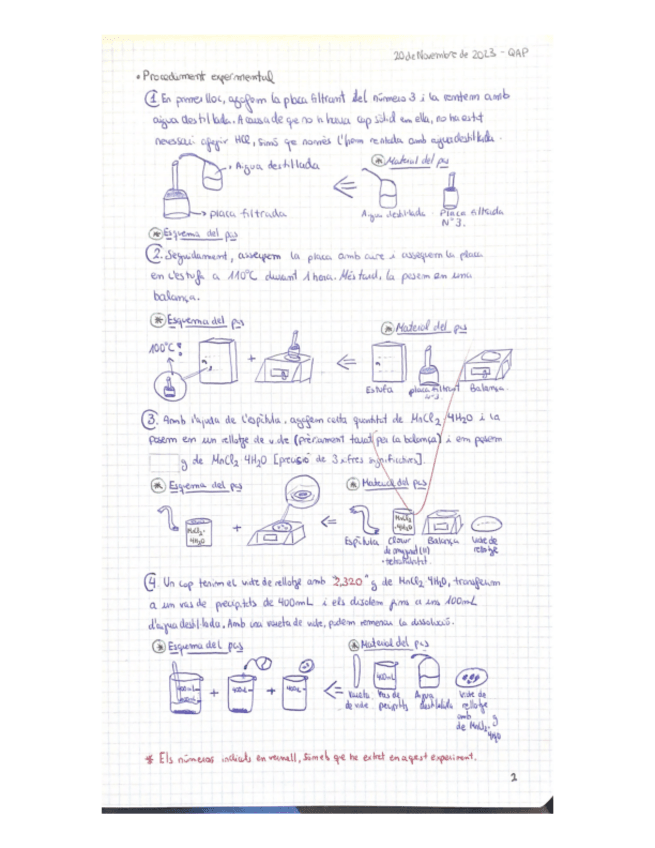 20 de Novembre de 2023 - QAP
• Procediment experimental
① En primer lloc, agafem la placa filtrant del número 3 i la rentem amb
aigua destil·lada. A causa de que no hi havia cap sòlid em ella, no ha estat
necessari afegir HCl, sinó que només l'hem rentada amb aigua destil·lada.
Aigua destil·lada
* Material del pas
placa filtrada
Aigua destil·lada
Placa filtrada
Nº3.
* Esquema del pas
②. Seguidament, assequem la placa amb cura i assequem la placa
en l'estufa a 110ºC durant 1 hora. Més tard, la posem en una
balança.
* Esquema del pas
* Material del pas
100ºC
Estufa
placa filtrant
nº3
Balança
③. Amb l'ajuda de l'espàtula, agafem certa quantitat de MnCl2 4H2O i la
posem em un rellotge de vidre (prèviament tarat per la balança) i em posem
g de MnCl2 4H2O [precisió de 3 xifres significatives].
* Esquema del pas
* Material del pas
MnCl2·
4H2O
MnCl2
·4H2O
Espàtula
Clorur
de manganès (II)
· tetrahidratat
Balança
Vidre de
rellotge
④. Un cop tenim el vidre de rellotge amb 2,320* g de MnCl2 4H2O, transferim
a un vas de precipitats de 400mL i els disolem fins a uns 100mL
d'aigua destil·lada. Amb una vareta de vidre, podem remenar la dissolució.
* Esquema del pas
* Material del pas
400mL
400mL
400mL
400mL
Vareta
de vidre
Vas de
precipitats
Aigua
destil·lada
Vidre de
rellotge
amb g
de MnCl2·
4H2O
* Els números indicats en vermell, són els que he extret en aquest experiment.
2